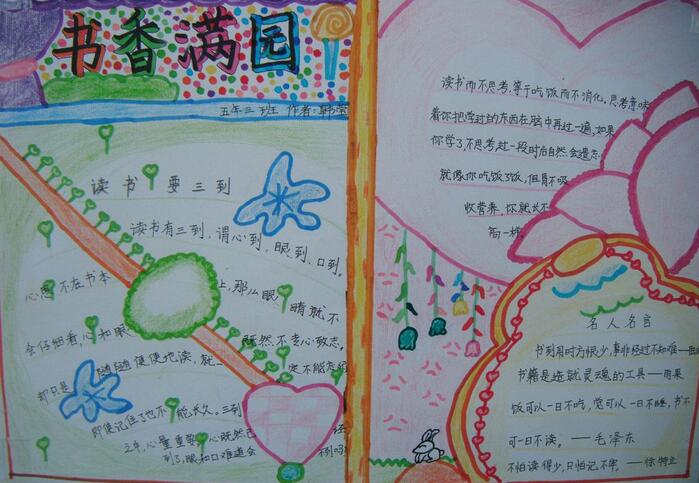 书香满园
五年三班 作者:韩
读书要三到
读书有三到,谓心到、眼到、口到。
心思不在书本上,那么眼睛就不
会仔细看,心和眼既然不专心致志,
却只是随随便便地读,就一定不能
即使记住了也不能长久。三到
之中,心
到了,眼和口难道会
读书而不思考,等于吃饭而不消化。思考意味
着你把学过的东西在脑中再过一遍,如果
你学了,不思考过一段时后自然会遗忘
就像你吃饭了饭,但胃不吸
收营养,你就长不
高一样。
名人名言
书到用时方恨少,事非经过不知难—
书籍是造就灵魂的工具——雨果
饭可以一日不吃,觉可以一日不睡,书不
可一日不读。——毛泽东
不怕读得少,只怕记不牢。——徐特立